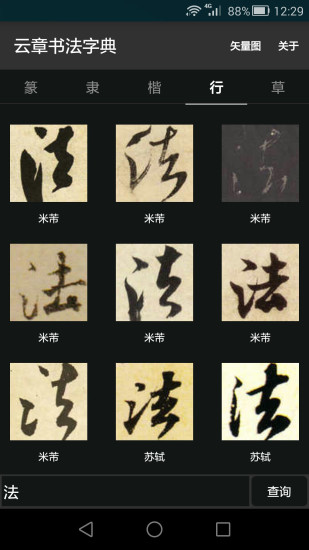 4G 88% 12:29
云章书法字典 矢量图 关于
篆 隶 楷 行 草
法 法 法
米芾 米芾 米芾
法 法 法
米芾 米芾 米芾
法 法 法
米芾 苏轼 苏轼
法 查询